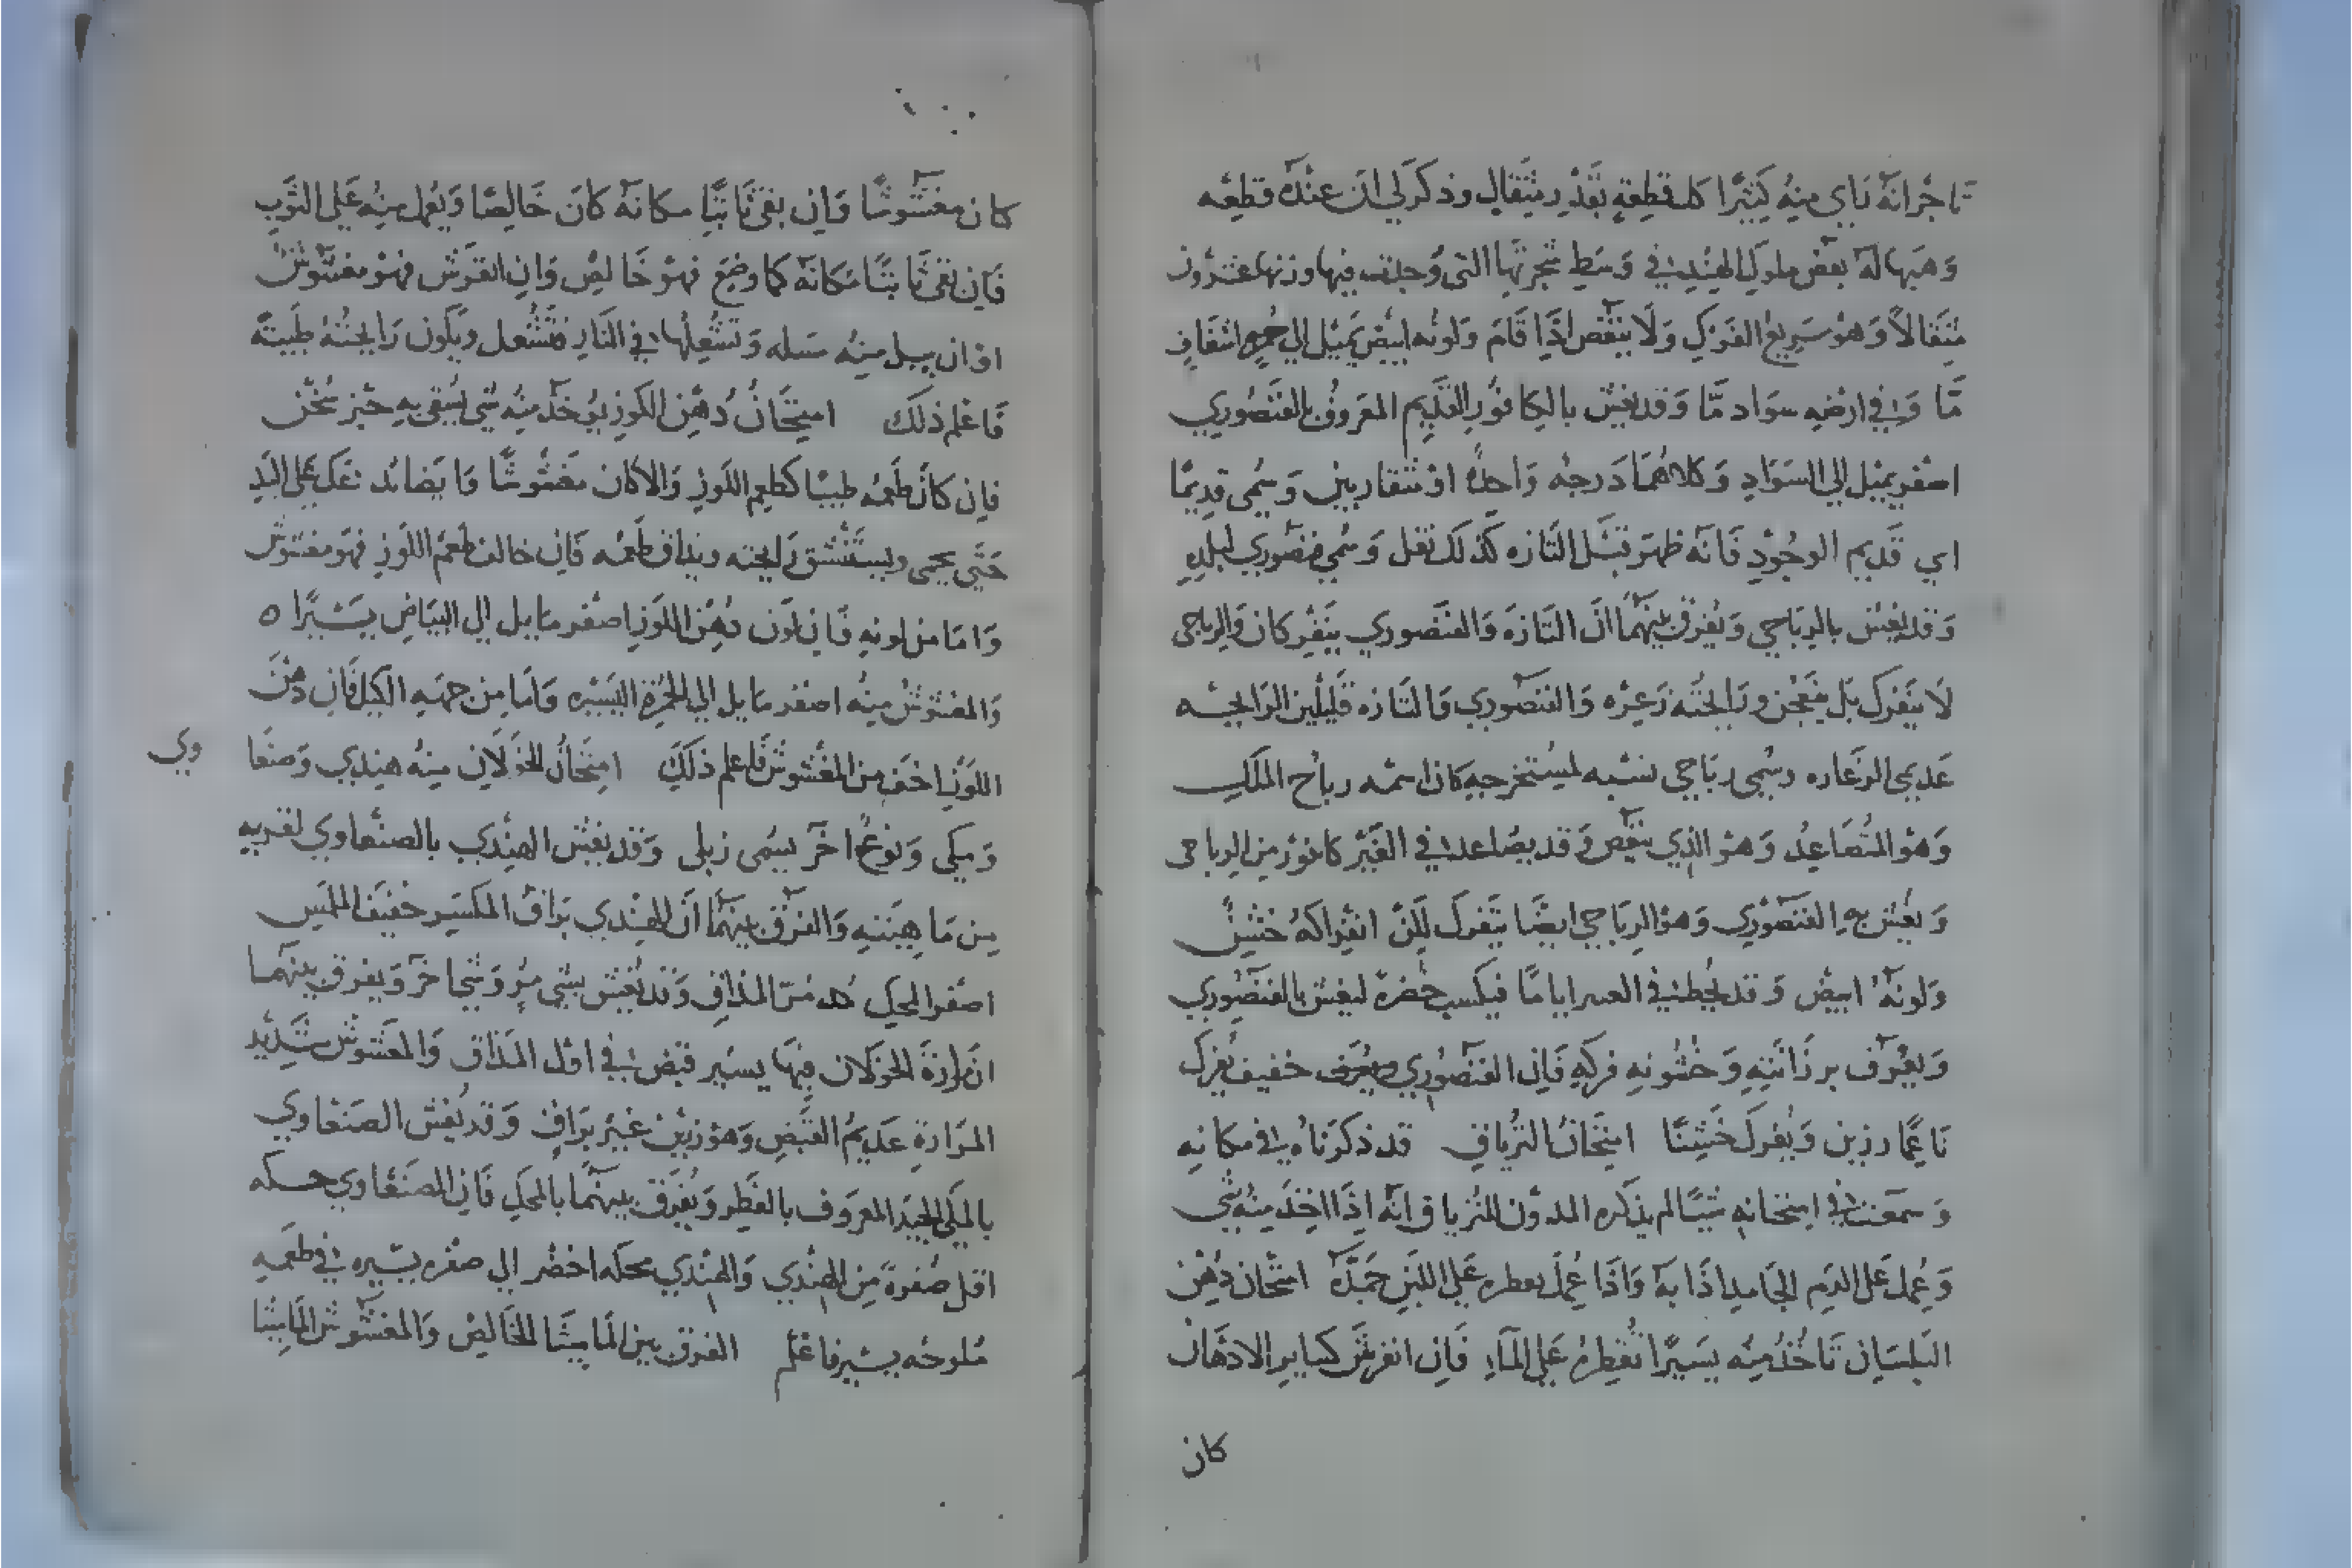 تاجرانه راي منه كثيرًا كل قطعةٍ بقدْر مثقال وذكر لي ان عنده قطعه
وهبها له بعض ملوك الهند في وسط شجرتها التي وجدت فيها وزنها عشرون
مثقالاً وهو سريع الفرك ولا ينقص اذا قام ولونه ابيض يميل الي حمرة
مّا وفي ارضه سواد مّا وقد يغش بالكافور القديم المعروف بالفنصوري
اصفر يميل الي السواد وكلاهما درجه واحدة او متقاربين وسمي قديمًا
اي قديم الوجود فانه ظهر قبل التازه كذلك نقل وسمي فنصوري لبلده
وقد يغش بالرباحي ويفرق بينهما انّ التازه والفنصوري ينفركان والرباحي
لا ينفرك بل ينعجن ورايحته زعره والفنصوري والتازه قليلين الرايحه
عديمي الزعاره وسمي رباحي نسبه لمستخرجه كان اسمه رباح الملك
وهو المتصاعد وهو الذي ينقص وقد يصاعد في الغير كافور من الرباحي
ويغش به الفنصوري وهو الرباحي ايضًا يتفرك لكنّ انفراكه خشنٌ
ولونه ابيض وقد يحط في ايامًا فيكسب خضرة ليغش بالفنصوري
ويعرف برزانته وخشونه فركه فان الفنصوري خفيف يفرك
ناعمًا رزين ويفرك خشنًا امتحان الترياق قد ذكرناه في مكانه
وسمعت في امتحانه شيئًا لم يذكره المدونون للترياق انه اذا اخذ منه شي
وعمل على الدم الجامد اذابه واذا عمل بعطره علي اللبن جمّده امتحان دهن
البلسان تاخذ منه يسيرًا تقطره علي الماء فان انفرش كساير الادهان
كان
كان مغشوشًا وان بقي ثابتًا مكانه كان خالصًا ويعمل منه علي الثوب
فان بقي ثابتًا مكانه كما وضع فهو خالص وان انفرش فهو مغشوش
او ان يبل منه وتشعلها في النار فتشعل ويكون رايحته طيبة
فاعلم ذلك امتحان دهن اللوز يوخذ منه شي يسقي به خبز سخن
فان كان طعمه طيبًا كطعم اللوز والا كان مغشوشًا وايضا علي اليد
حتي يحمي ويستنشق رايحته ويذاق طعمه فان خالف طعم اللوز فهو مغشوش
واما من لونه فان لون دهن اللوز اصفر مايل الي البياض يسيرًا ه
والمغشوش منه اصفر مايل الي الحمرة اليسيره واما من جهه الكيل فان دهن
اللوز اخف من المغشوش فاعلم ذلك امتحان الخولان منه هندي وصنعا
وي
ومكي ونوعٌ اخر يسمي زبلي وقد يغش الهندي بالصنعاوي لقربه
من ماهيته والفرق بينهما ان الهندي براق المكسر خفيف الملمس
اصفر المحك مرّ المذاق وقد يغش بشي مر وشي اخر ويفرق بينهما
ان مرارة الخولان فيها يسير قبض في اول المذاق والمغشوش شديد
المرارة عديم القبض وهو رزين غير براق وقد يغش الصنعاوي
بالمكي الجيد المعروف بالقطر ويفرق بينهما بالمحك فان الصنعاوي حكه
اقل صفرة من الهندي والهندي محكه اخضر الي صفره يسيره في طعمه
ملوحه يسير فاعلم الفرق بين الماميثا الخالص والمغشوش الماميثا